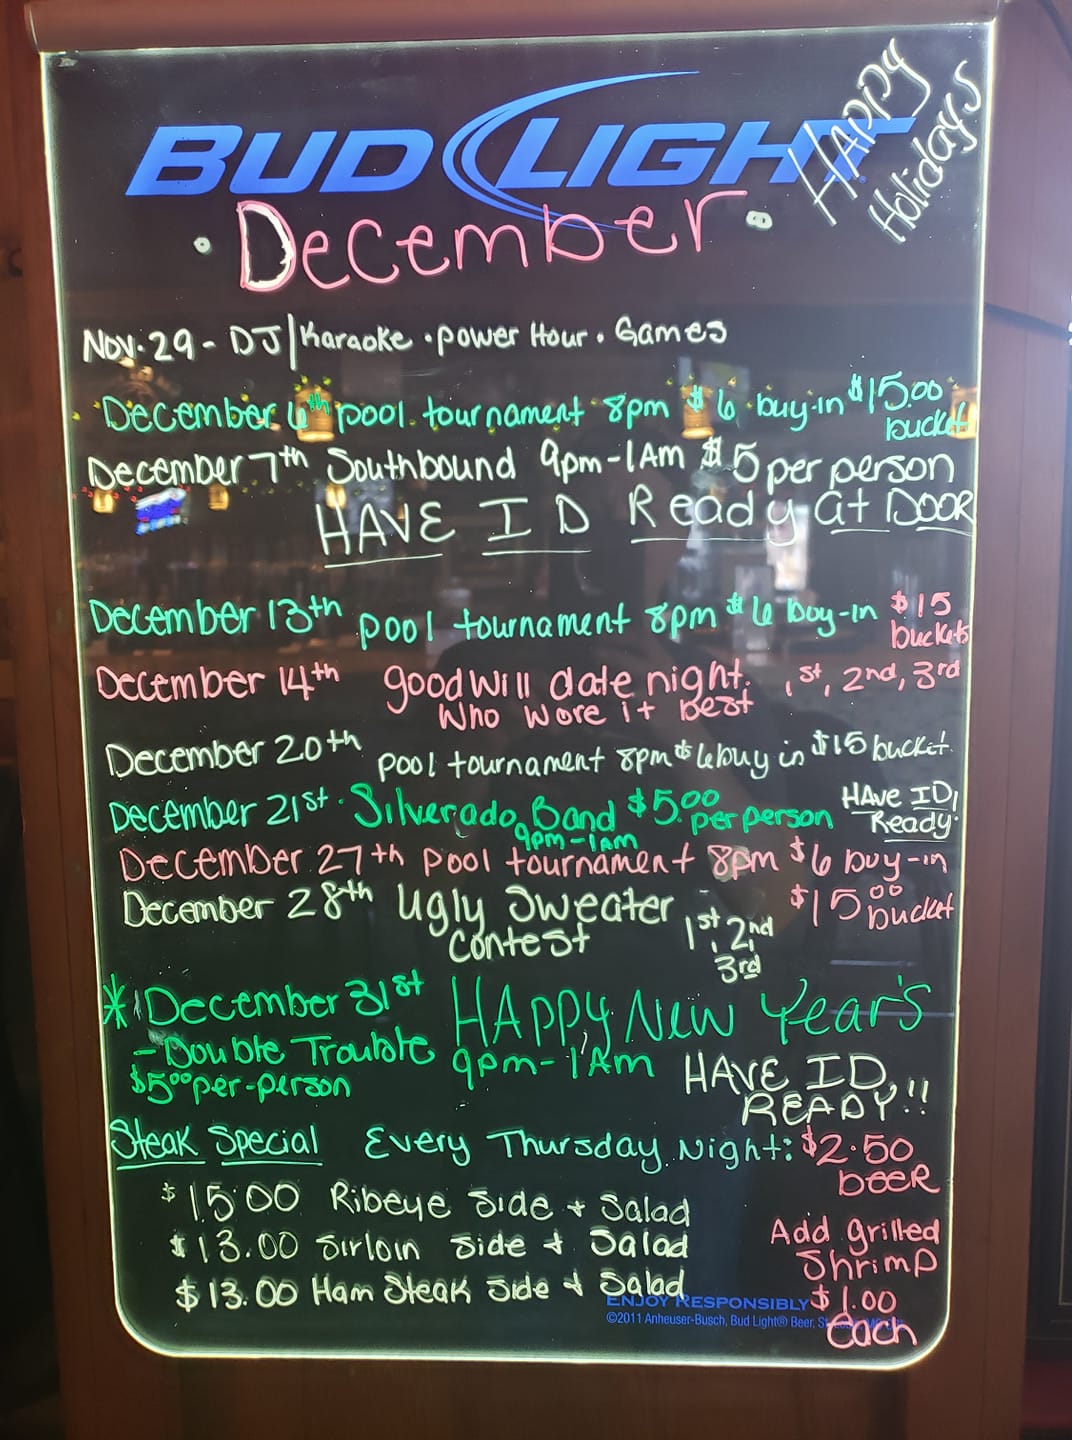 BUD LIGHT
Happy
Holidays
• December •
Nov. 29 - DJ/Karaoke • Power Hour • Games
December 6th pool tournament 8pm $6 buy-in $15.00
bucket
December 7th Southbound 9pm-1Am $5 per person
HAVE ID Ready at DOOR
December 13th pool tournament 8pm $6 buy-in $15
buckets
December 14th goodwill date night. 1st, 2nd, 3rd
Who wore it best
December 20th pool tournament 8pm $6 buy in $15 bucket.
December 21st • Silverado Band $5.00 per person HAve ID,
9pm-1AM Ready.
December 27th pool tournament 8pm $6 buy-in
$15.00 bucket
December 28th Ugly Sweater
Contest
1st, 2nd,
3rd
* December 31st HAppy New Year's
- Double Trouble 9pm-1Am
$5.00 per-person
HAVE ID
READY!!
Steak Special Every Thursday Night: $2.50
beer
$15.00 Ribeye Side + Salad
$13.00 Sirloin Side + Salad
$13.00 Ham Steak Side + Salad
Add grilled
Shrimp
$1.00
each
ENJOY RESPONSIBLY
©2011 Anheuser-Busch, Bud Light® Beer,